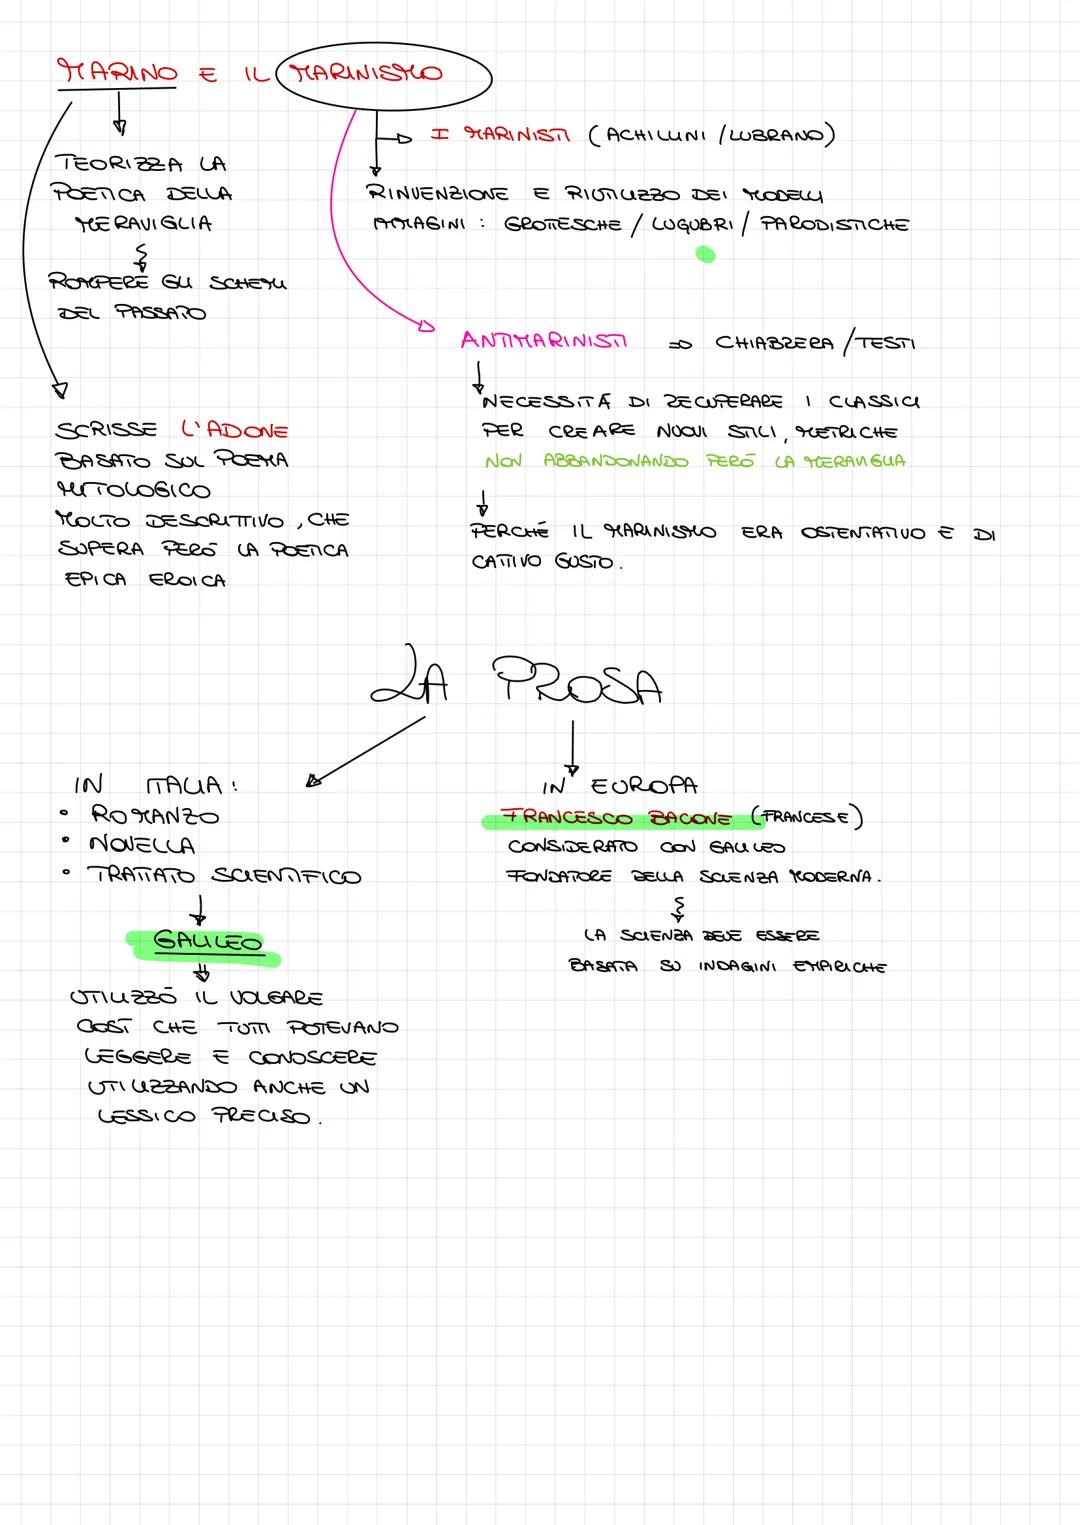 MARINO E IL MARINISMO
I MARINISTI (ACHILLINI / LUBRANO)
TEORIZZA LA
POETICA DELLA
MERAVIGLIA
ROMPERE GLI SCHEMI
DEL PASSATO
RINVENZIONE E RIUTILIZZO DEI MODELLI
IMMAGINI : GROTTESCHE / LUGUBRI / PARODISTICHE
ANTIMARINISTI => CHIABRERA / TESTI
NECESSITÁ DI RECUPERARE I CLASSICI
PER CREARE NUOVI STILI, METRICHE
NON ABBANDONANDO PERÓ LA MERAVIGLIA
PERCHÉ IL MARINISMO ERA OSTENTATIVO E DI
CATTIVO GUSTO.
SCRISSE L'ADONE
BASATO SUL POEMA
MITOLOGICO
MOLTO DESCRITTIVO, CHE
SUPERA PERÓ LA POETICA
EPICA EROICA
LA PROSA
IN ITALIA:
• ROMANZO
• NOVELLA
• TRATTATO SCIENTIFICO
GALILEO
UTILIZZÓ IL VOLGARE
COSÍ CHE TUTTI POTEVANO
LEGGERE E CONOSCERE
UTILIZZANDO ANCHE UN
LESSICO PRECISO.
IN EUROPA
FRANCESCO BACONE (FRANCESE)
CONSIDERATO CON GALILEO
FONDATORE DELLA SCIENZA MODERNA.
LA SCIENZA DEVE ESSERE
BASATA SU INDAGINI EMPIRICHE